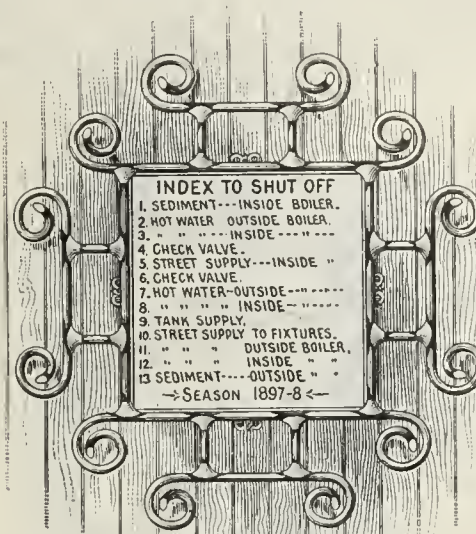 INDEX TO SHUT OFF
1. SEDIMENT---INSIDE BOILER.
2. HOT WATER OUTSIDE BOILER.
3. " " "----INSIDE---"---
4. CHECK VALVE.
5. STREET SUPPLY---INSIDE "
6. CHECK VALVE.
7. HOT WATER-OUTSIDE--"----
8. " " " " INSIDE-"---
9. TANK SUPPLY,
10. STREET SUPPLY TO FIXTURES.
11. " " " OUTSIDE BOILER,
12. " " " INSIDE " "
13 SEDIMENT----OUTSIDE " "
→SEASON 1897-8←